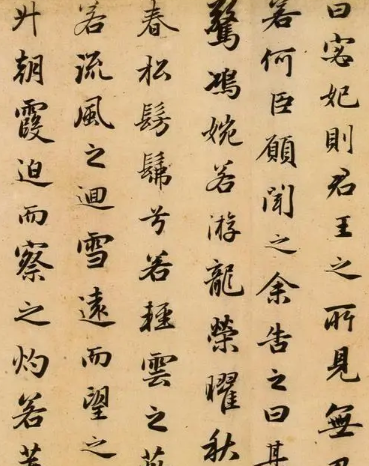 曰宓妃則君王之所見無
若何臣願聞之余告之曰其
驚鴻婉若游龍榮曜秋
春松髣髴兮若輕雲之
若流風之迴雪遠而望之
升朝霞迫而察之灼若